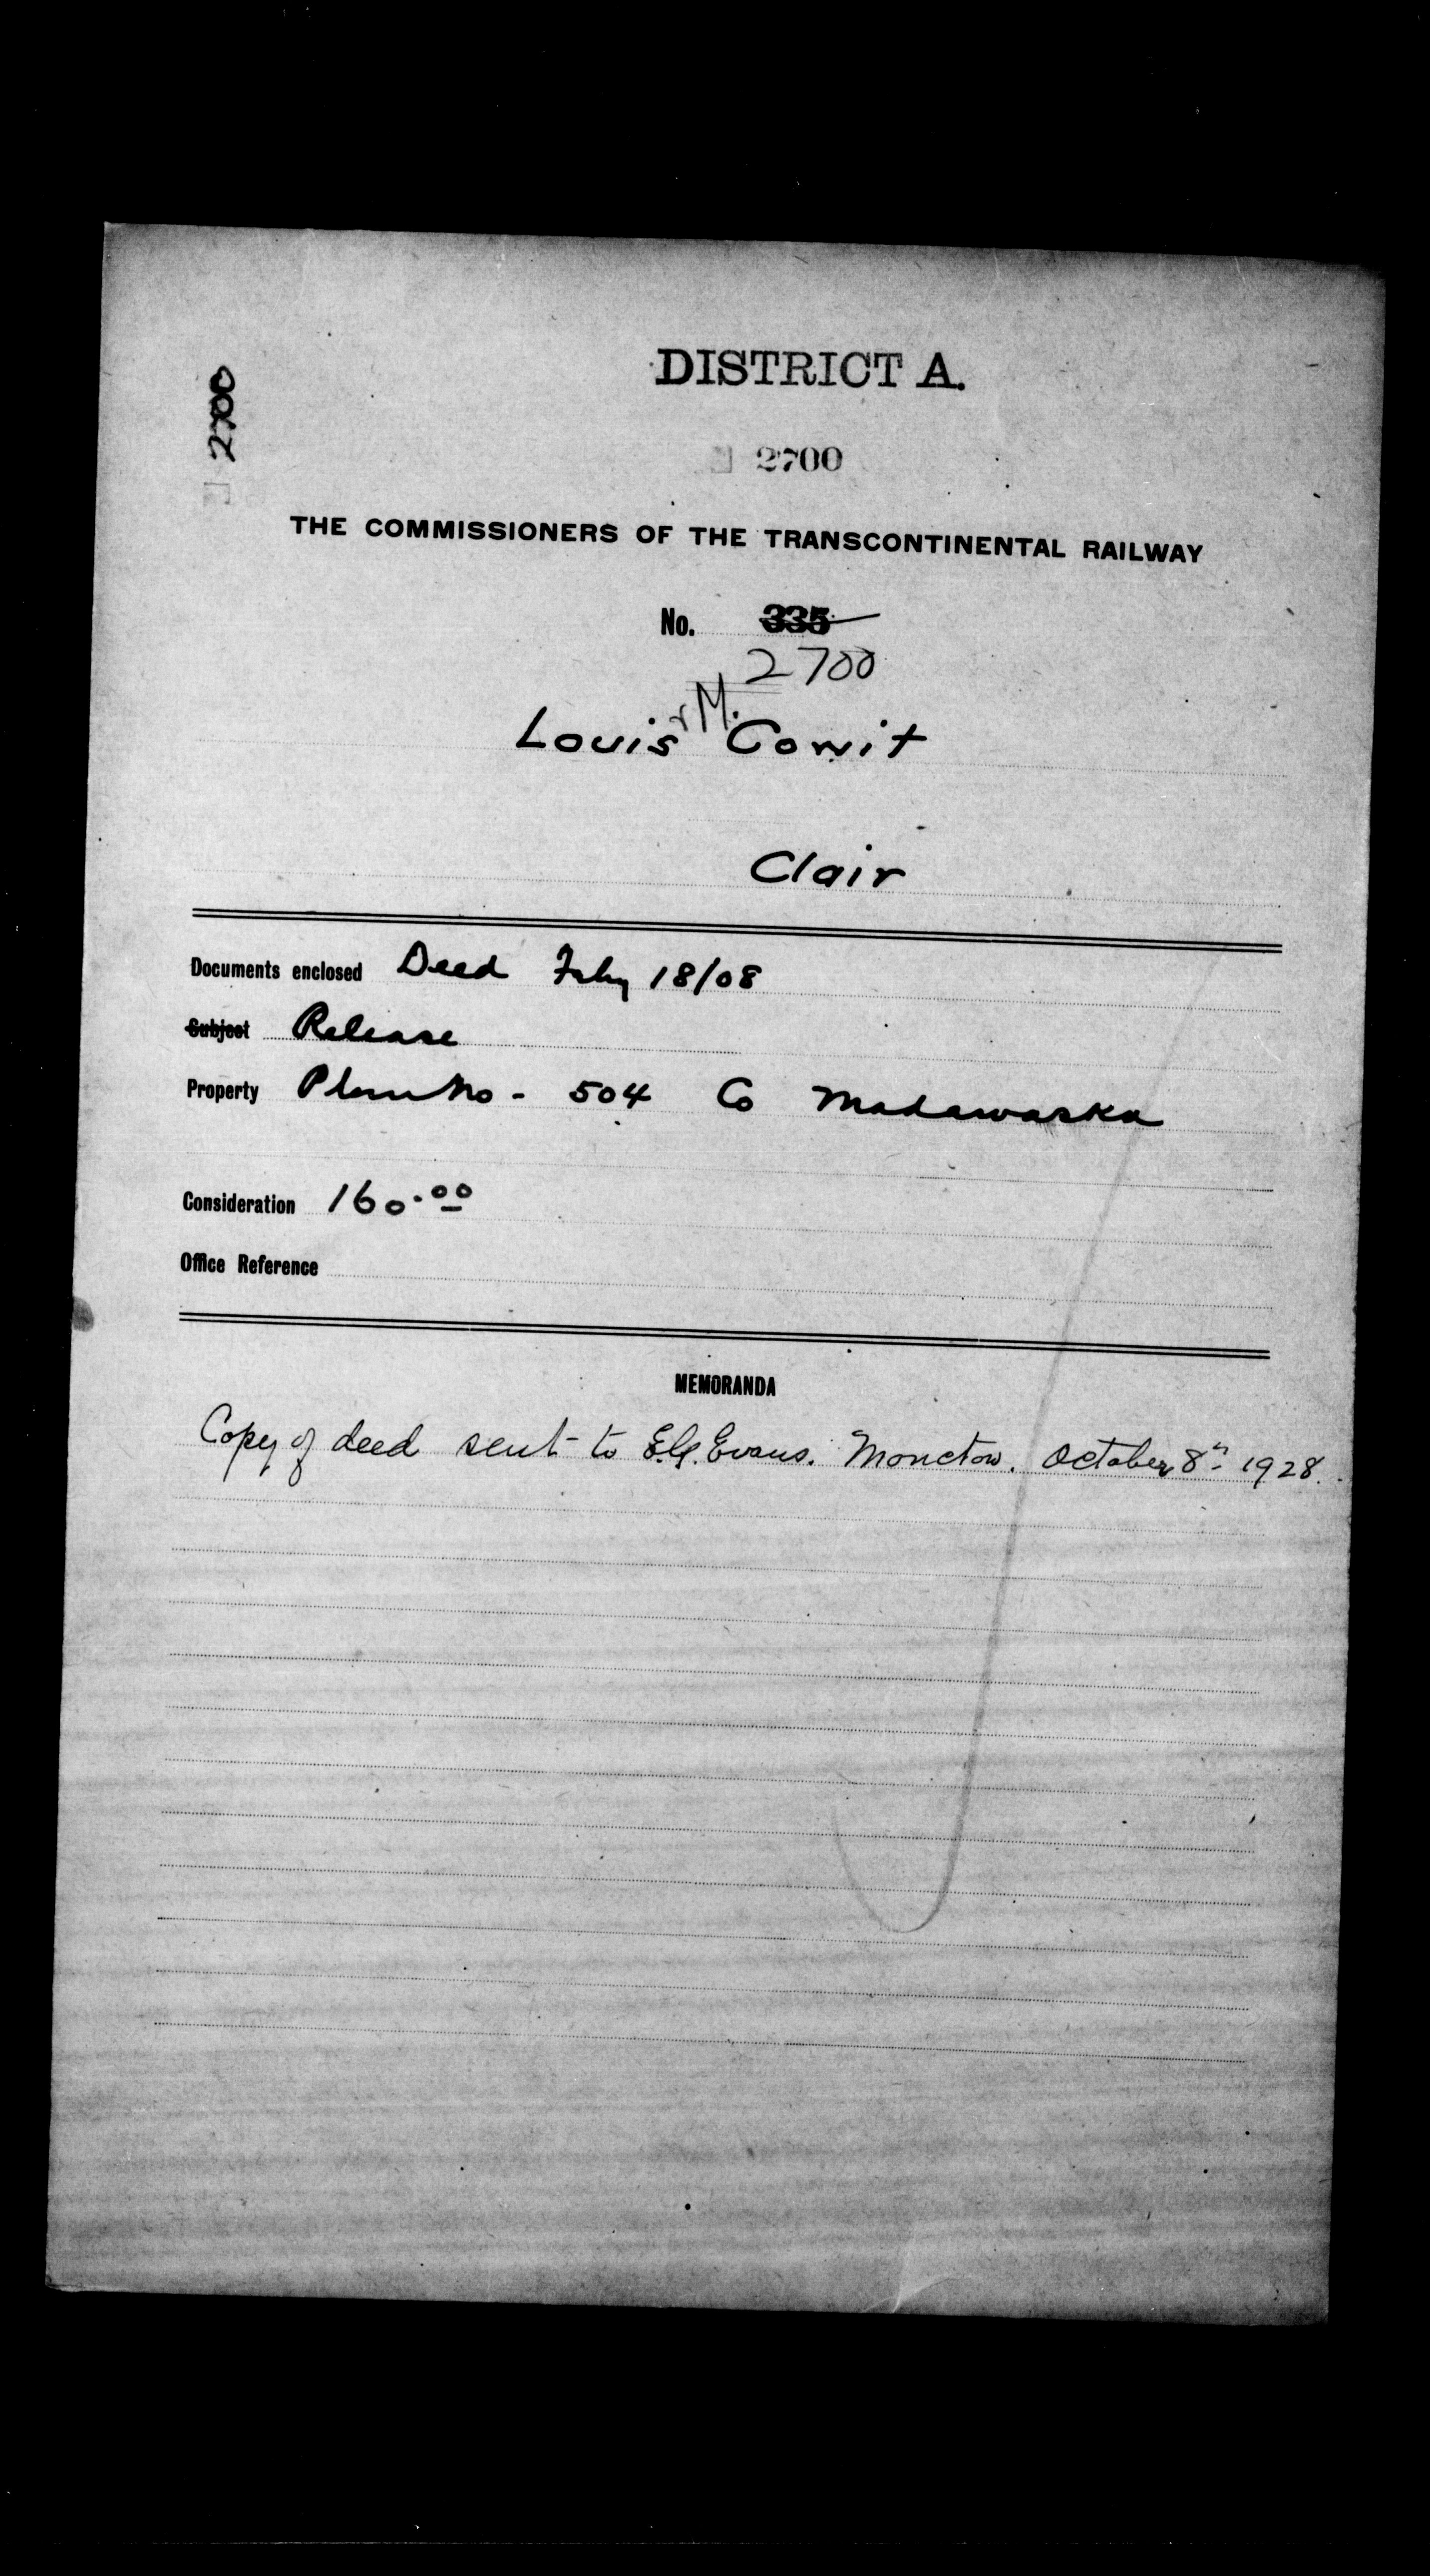 DISTRICT A.
2700
2700
THE COMMISSIONERS OF THE TRANSCONTINENTAL RAILWAY
No. 335
2700
Louis M. Cowit
Clair
Documents enclosed Deed Feby 18/08
Subject Release
Property Plan No - 504 Co Madawaska
Consideration 160.00
Office Reference
MEMORANDA
Copy of deed sent to Evans. Moncton. October 8th 1928.